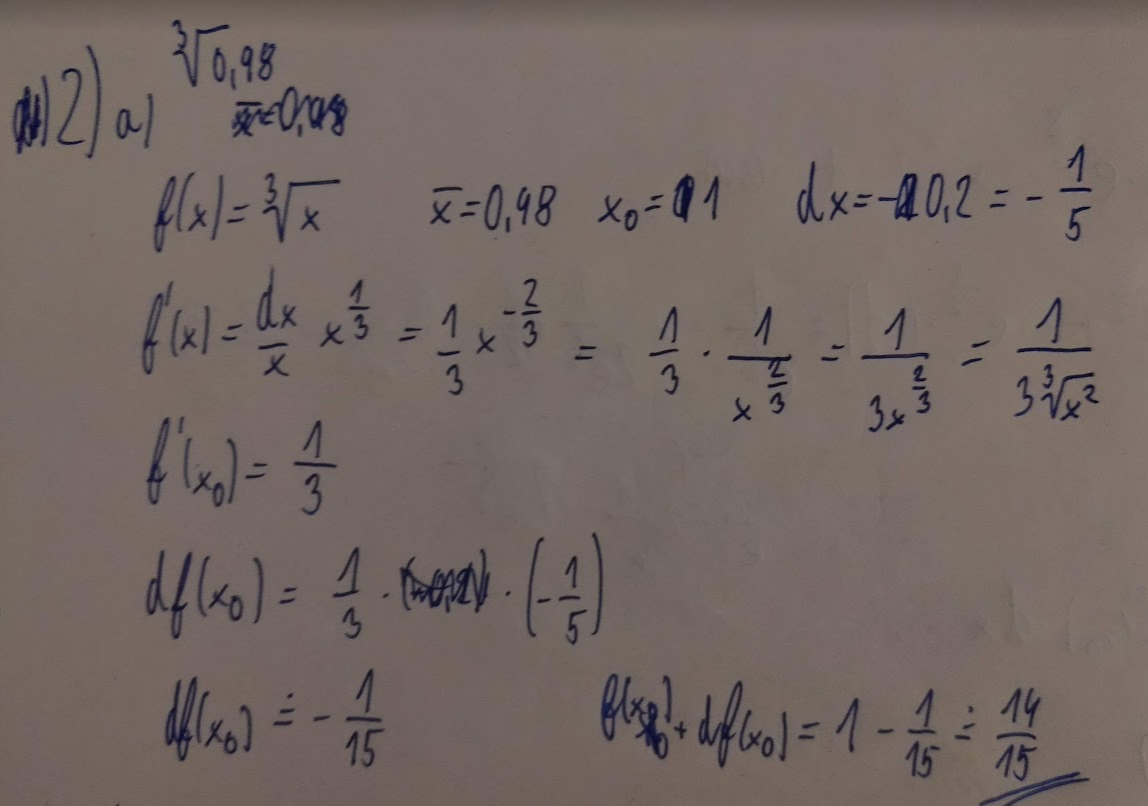 2) a) ∛0,98
x̄=0,98
f(x) = ∛x x̄ = 0,98 x₀ = 1 dx = -0,2 = - 1/5
f'(x) = dx/x x^(1/3) = 1/3 x^(-2/3) = 1/3 · 1/x^(2/3) = 1/(3x^(2/3)) = 1/(3∛x²)
f'(x₀) = 1/3
df(x₀) = 1/3 · · (- 1/5)
df(x₀) ≐ - 1/15 f(x₀) + df(x₀) = 1 - 1/15 ≐ 14/15